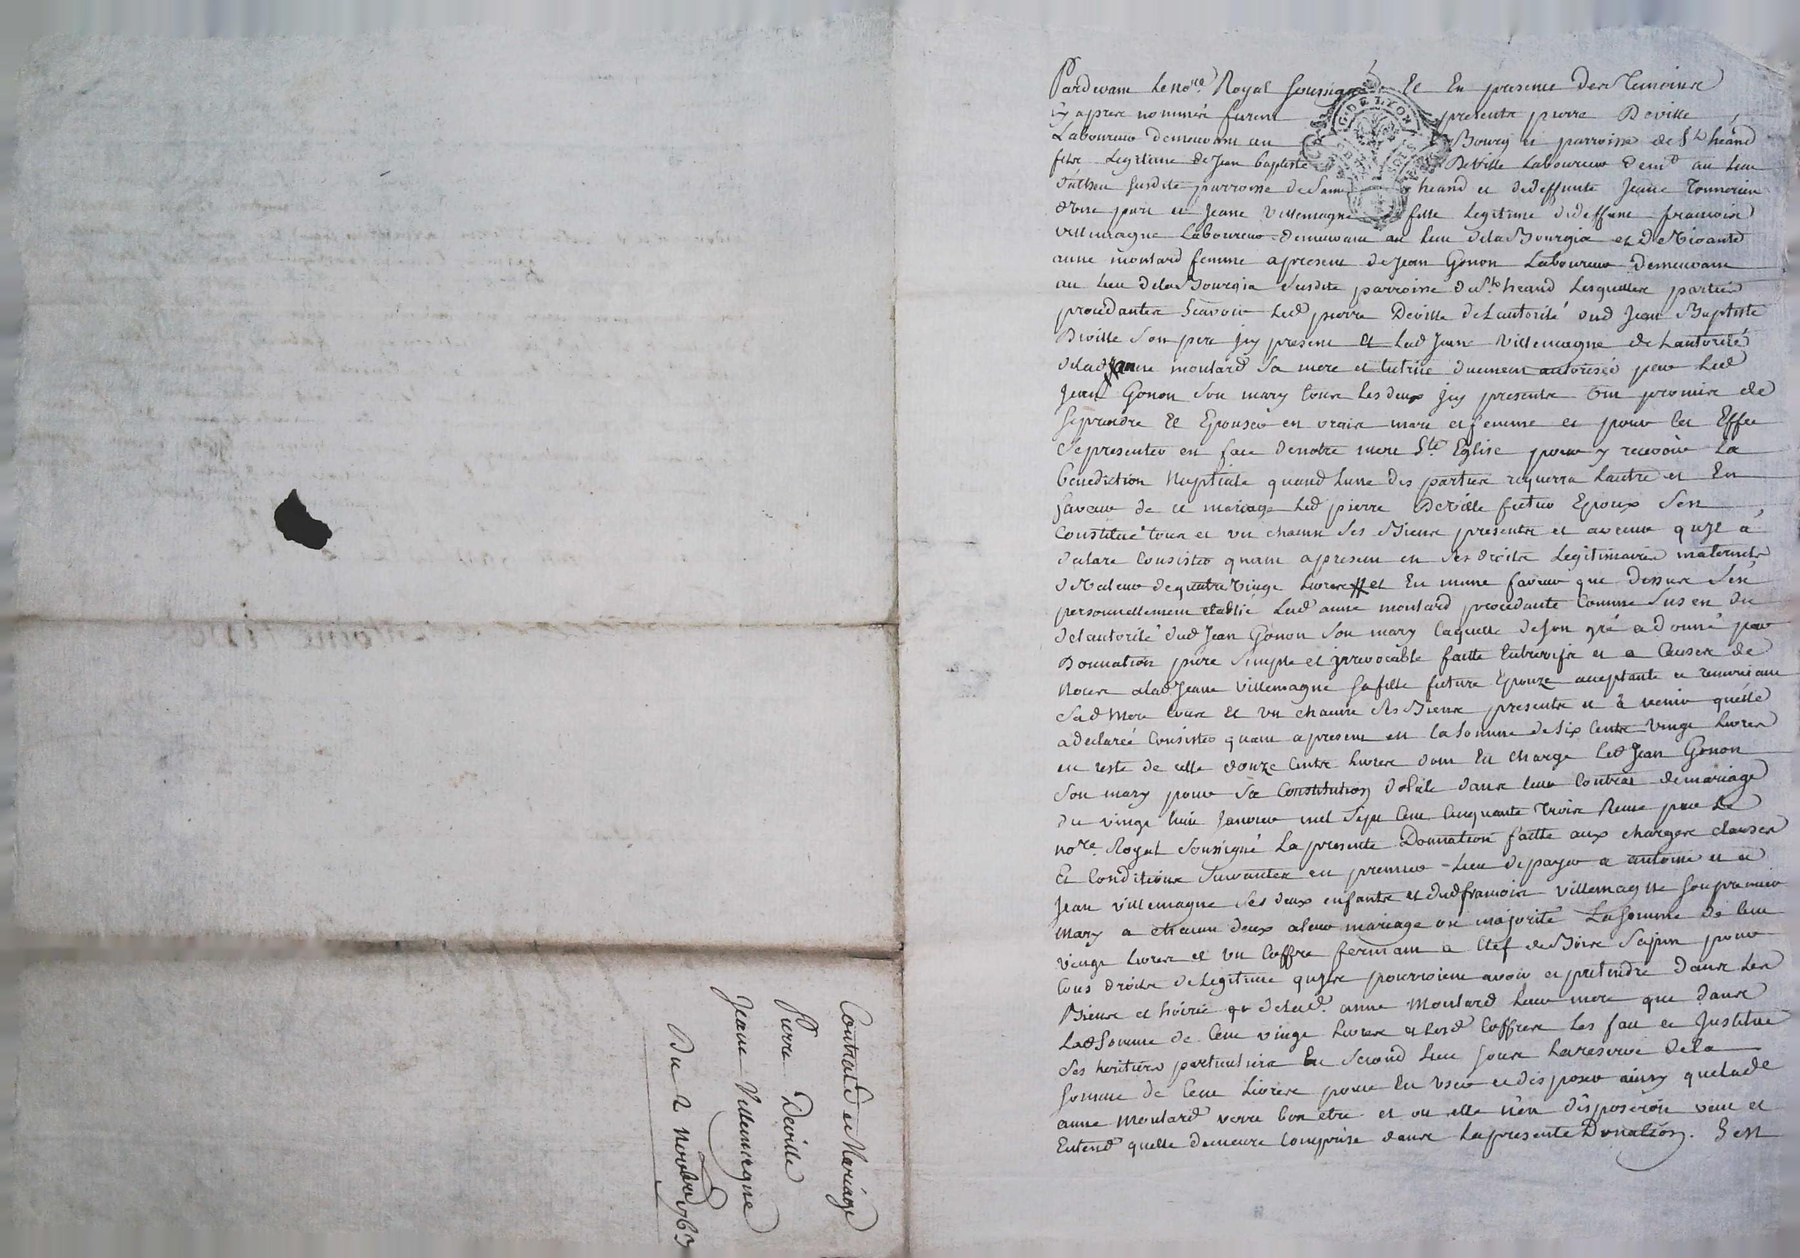 Contrat de Mariage
Pierre Deville
Jeanne Villemagne
Du 2 novbre 1763
Pardevant le nore Royal soussigné Et En presence des temoins
cy apres nommés furent presents pierre Deville
Laboureur demeurant au Bourg et parroisse de St heand
fils Legitime de Jean baptiste Deville Laboureur demt au lieu
susdite parroisse de Saint heand et de deffunte Jeane
d'une part et Jeane Villemagne fille Legitime de deffunt francois
villemagne Laboureur demeurant au lieu dela Bourgia et de vivante
anne moulard femme apresent de Jean Gonon Laboureur demeurant
au lieu dela Bourgia susdite parroisse de St heand Lesquelles parties
procedantes scavoir Led pierre Deville de Lautorité dud Jean Baptiste
Deville son pere icy present et Lad Jeane villemagne de Lautorité
delad anne moulard sa mere et tutrice duement autorisée par Led
Jean Gonon son mary tous Les deux icy presents ont promis de
se prendre Et Epouser en vrais mari et femme et pour cet Effet
se presenter en face de notre mere Ste Eglise pour y recevoir La
benediction Nuptiale quand Lune des parties requerra Lautre et En
faveur de ce mariage Led pierre Deville futur Epoux s'est
Constitué tous et un chacun ses Biens presents et avenir quil a
declaré Consister quant apresent en ses droits Legitimaires maternels
de valeur de quatre vingt Livres et En meme faveur que dessus s'est
personnellement etablie Lad anne moulard procedante Comme sus en du
de Lautorité dud Jean Gonon son mary Laquelle de son gré a donné par
Donnation pure simple et irrevocable faitte Entrevifs et a Cause de
Noces alad Jeane villemagne sa fille future Epouze acceptante et remerciant
sad mere tous Et un chacun ses Biens presents et à venir quelle
a declaré Consister quant apresent en La somme de six Cents vingt Livres
en reste de celle douze Cents Livres dont Est chargé Led Jean Gonon
son mary pour sa Constitution dotale dans leur Contrat de mariage
du vingt huit Janvier mil sept Cent Cinquante trois Reçu par Le
nore Royal soussigné La presente Donnation faitte aux charges clauses
Et Conditions suivantes en premier Lieu de payer a antoine et a
Jean villemagne ses deux enfants et dud francois villemagne son premier
mary a chacun deux aleur mariage ou majorité La somme de Cent
vingt Livres et un Coffre fermant a Clef de Bois sapin pour
tous droits de Legitime quils pourroient avoir et pretendre dans Les
Biens et hoirie delad. anne Moulard leur mere que dans
Lad somme de Cent vingt Livres et Lesd Coffres Les fait et Institue
ses heritiers particuliers En second Lieu sous La reserve dela
somme de Cent Livres pour En user et disposer ainsy que lade
anne moulard verra bon etre et ou elle n'en disposeroit veut et
Entend quelle demeure Comprise dans La presente Donation. S'est